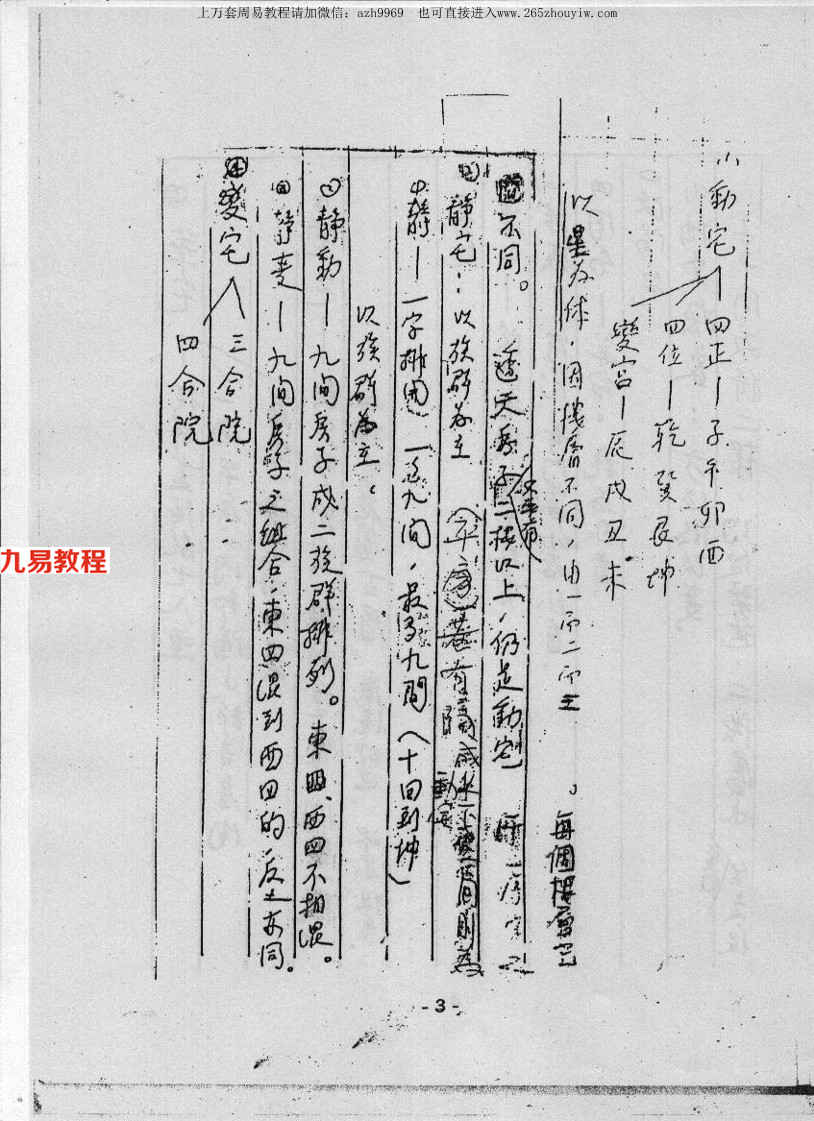 上万套周易教程请加微信：azh9969 也可直接进入www.265zhouyiw.com
動宅－四正－子午卯西
四位－乾 艮坤
變宮－辰戌丑未
以星為体，因樓層不同，由一而二而三
。每個樓層
不同。 透天房子二樓以上，仍是動宅
靜宅：以族群為主 （平房）若有隔 則為
動宅
靜－一字排開 一至九間，最多九間（十回到坤）
以族群為主。
靜動－九間房子成二族群排列。東四、西四不相混。
靜變－九間房子之組合，東四混到西四的，反之亦同。
變宅 三合院
四合院
九易教程
- 3 -